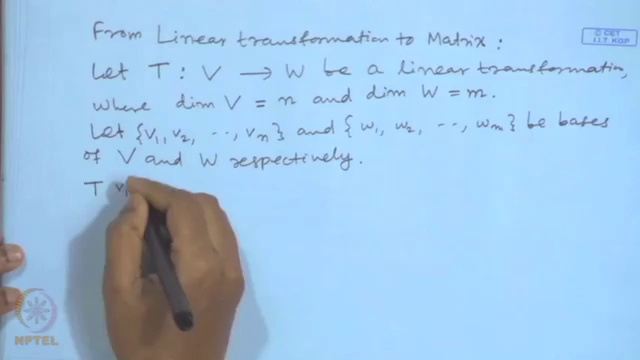 © CET
I.I.T. KGP
From Linear transformation to Matrix :
Let T : V → W be a linear transformation,
where dim V = n and dim W = m.
Let {v₁, v₂, ..., vₙ} and {w₁, w₂, ..., wₘ} be bases
of V and W respectively.
T v₁
NPTEL